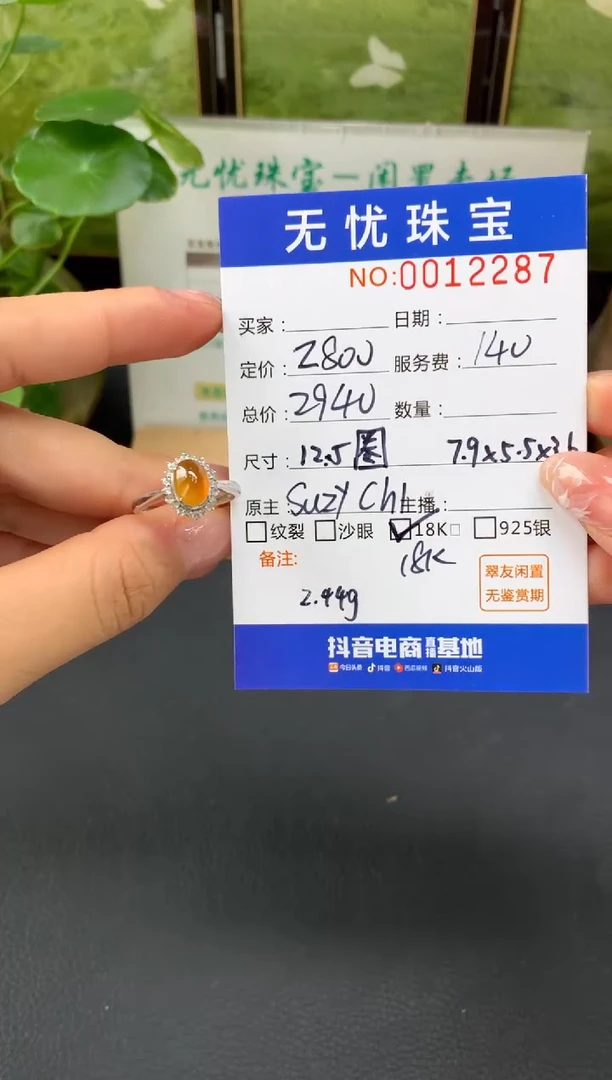 无忧珠宝一闲置专场
无忧珠宝
NO:0012287
买家： 日期：
定价：2800 服务费：140
总价：2940 数量：
尺寸：12.5圈 7.9x5.5x3.
原主：Suzy Chi 主播：
纹裂 沙眼 18K 925银
备注： 18K
翠友闲置
2.44g 无鉴赏期
抖音电商直播基地
今日头条 抖音 西瓜视频 抖音火山版